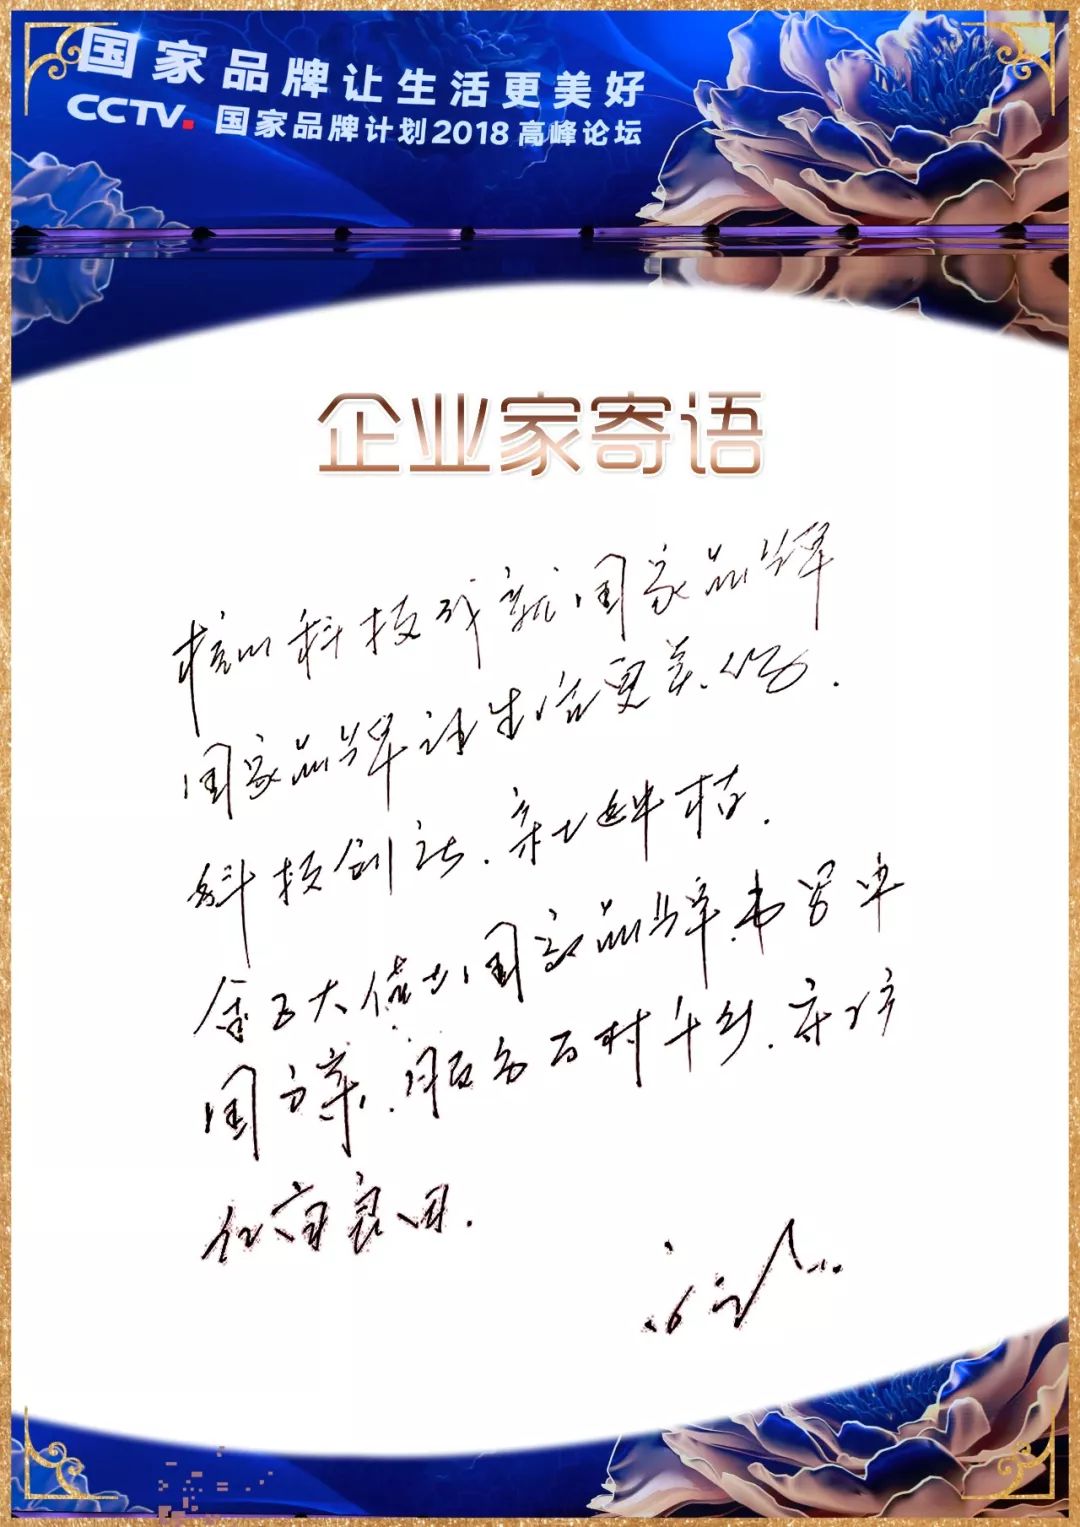 国家品牌让生活更美好
CCTV. 国家品牌计划2018高峰论坛
企业家寄语
核心科技成就国家品牌
国家品牌让生活更美好.
科技创新.
金正大 国家品牌
国方案.服务百村千乡.
亿亩良田.